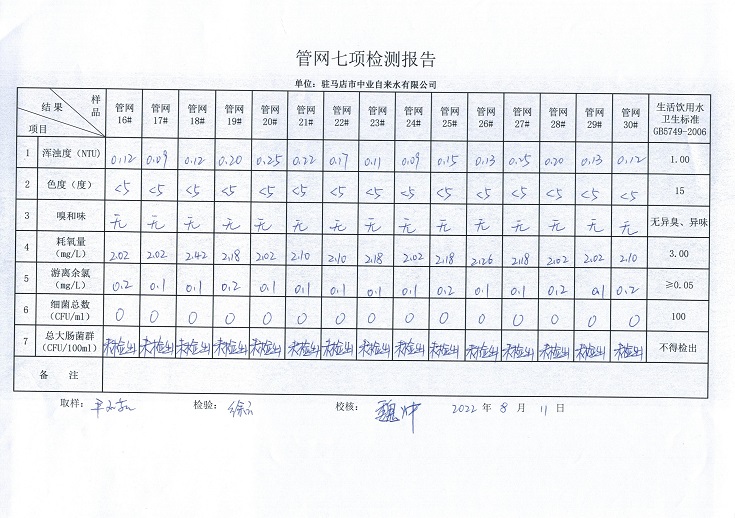 管网七项检测报告
单位: 驻马店市中业自来水有限公司
结果 样品 项目 管网16# 管网17# 管网18# 管网19# 管网20# 管网21# 管网22# 管网23# 管网24# 管网25# 管网26# 管网27# 管网28# 管网29# 管网30# 生活饮用水卫生标准GB5749-2006
1 浑浊度（NTU） 0.12 0.09 0.12 0.20 0.25 0.22 0.17 0.11 0.09 0.15 0.13 0.25 0.20 0.13 0.12 1.00
2 色度（度） <5 <5 <5 <5 <5 <5 <5 <5 <5 <5 <5 <5 <5 <5 <5 15
3 嗅和味 无 无 无 无 无 无 无 无 无 无 无 无 无 无 无 无异臭、异味
4 耗氧量（mg/L） 2.02 2.02 2.42 2.18 2.02 2.10 2.10 2.18 2.02 2.18 2.26 2.18 2.02 2.02 2.10 3.00
5 游离余氯（mg/L） 0.2 0.1 0.1 0.2 0.1 0.1 0.1 0.1 0.1 0.2 0.1 0.1 0.2 0.1 0.2 ≥0.05
6 细菌总数（CFU/ml） 0 0 0 0 0 0 0 0 0 0 0 0 0 0 0 100
7 总大肠菌群（CFU/100ml） 未检出 未检出 未检出 未检出 未检出 未检出 未检出 未检出 未检出 未检出 未检出 未检出 未检出 未检出 未检出 不得检出
备 注
取样: 检验: 校核: 2022 年 8 月 11 日